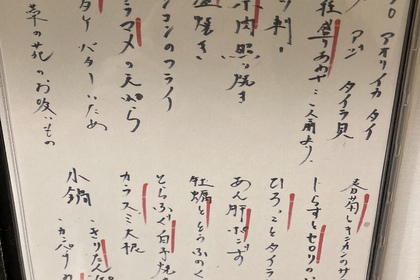 アオリイカ タイ
アジ タイラ貝
盛りあわせ 二人前より、
刺
肉照り焼き
塩焼き
コンのフライ
ラマメの天ぷら
タケ バターいため
菜の花のお吸いもの
春菊とキノコのサ
しらすとセロリの
ひろことタイラ
あん肝ポンず
牡蠣とと
とらふぐ白子焼
カラスミ大根
小鍋
・きりたんぽ
・カンパチ